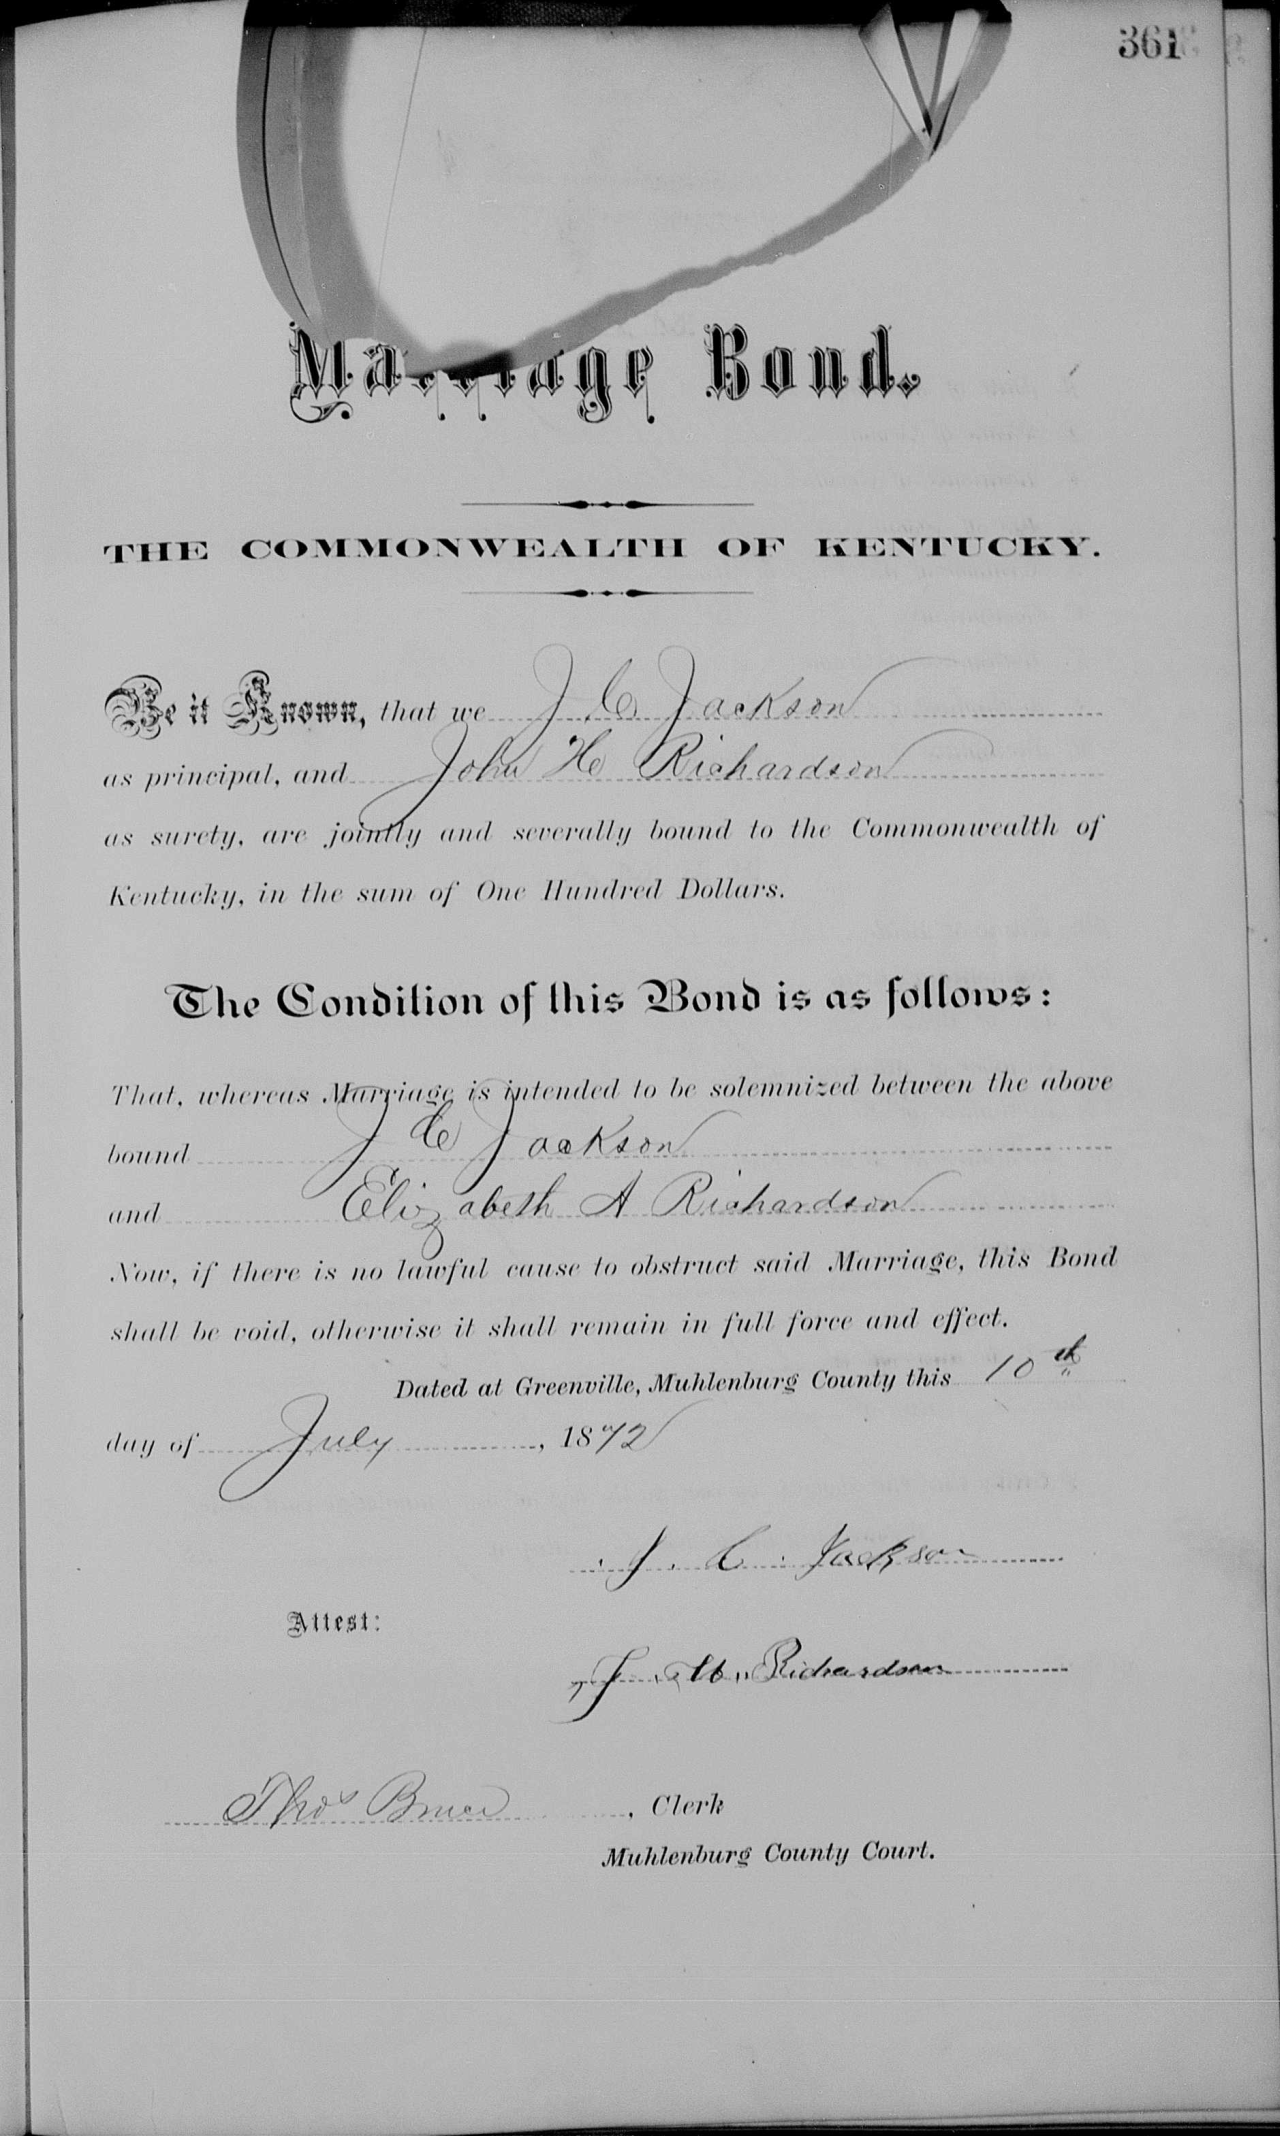 361
Marriage Bond.
THE COMMONWEALTH OF KENTUCKY.
Be it Known, that we J C Jackson
as principal, and John H Richardson
as surety, are jointly and severally bound to the Commonwealth of
Kentucky, in the sum of One Hundred Dollars.
The Condition of this Bond is as follows:
That, whereas Marriage is intended to be solemnized between the above
bound J C Jackson
and Elizabeth A Richardson
Now, if there is no lawful cause to obstruct said Marriage, this Bond
shall be void, otherwise it shall remain in full force and effect.
Dated at Greenville, Muhlenburg County this 10th
day of July, 1872
J. C. Jackson
Attest:
J. H. Richardson
Thos Bruce, Clerk
Muhlenburg County Court.